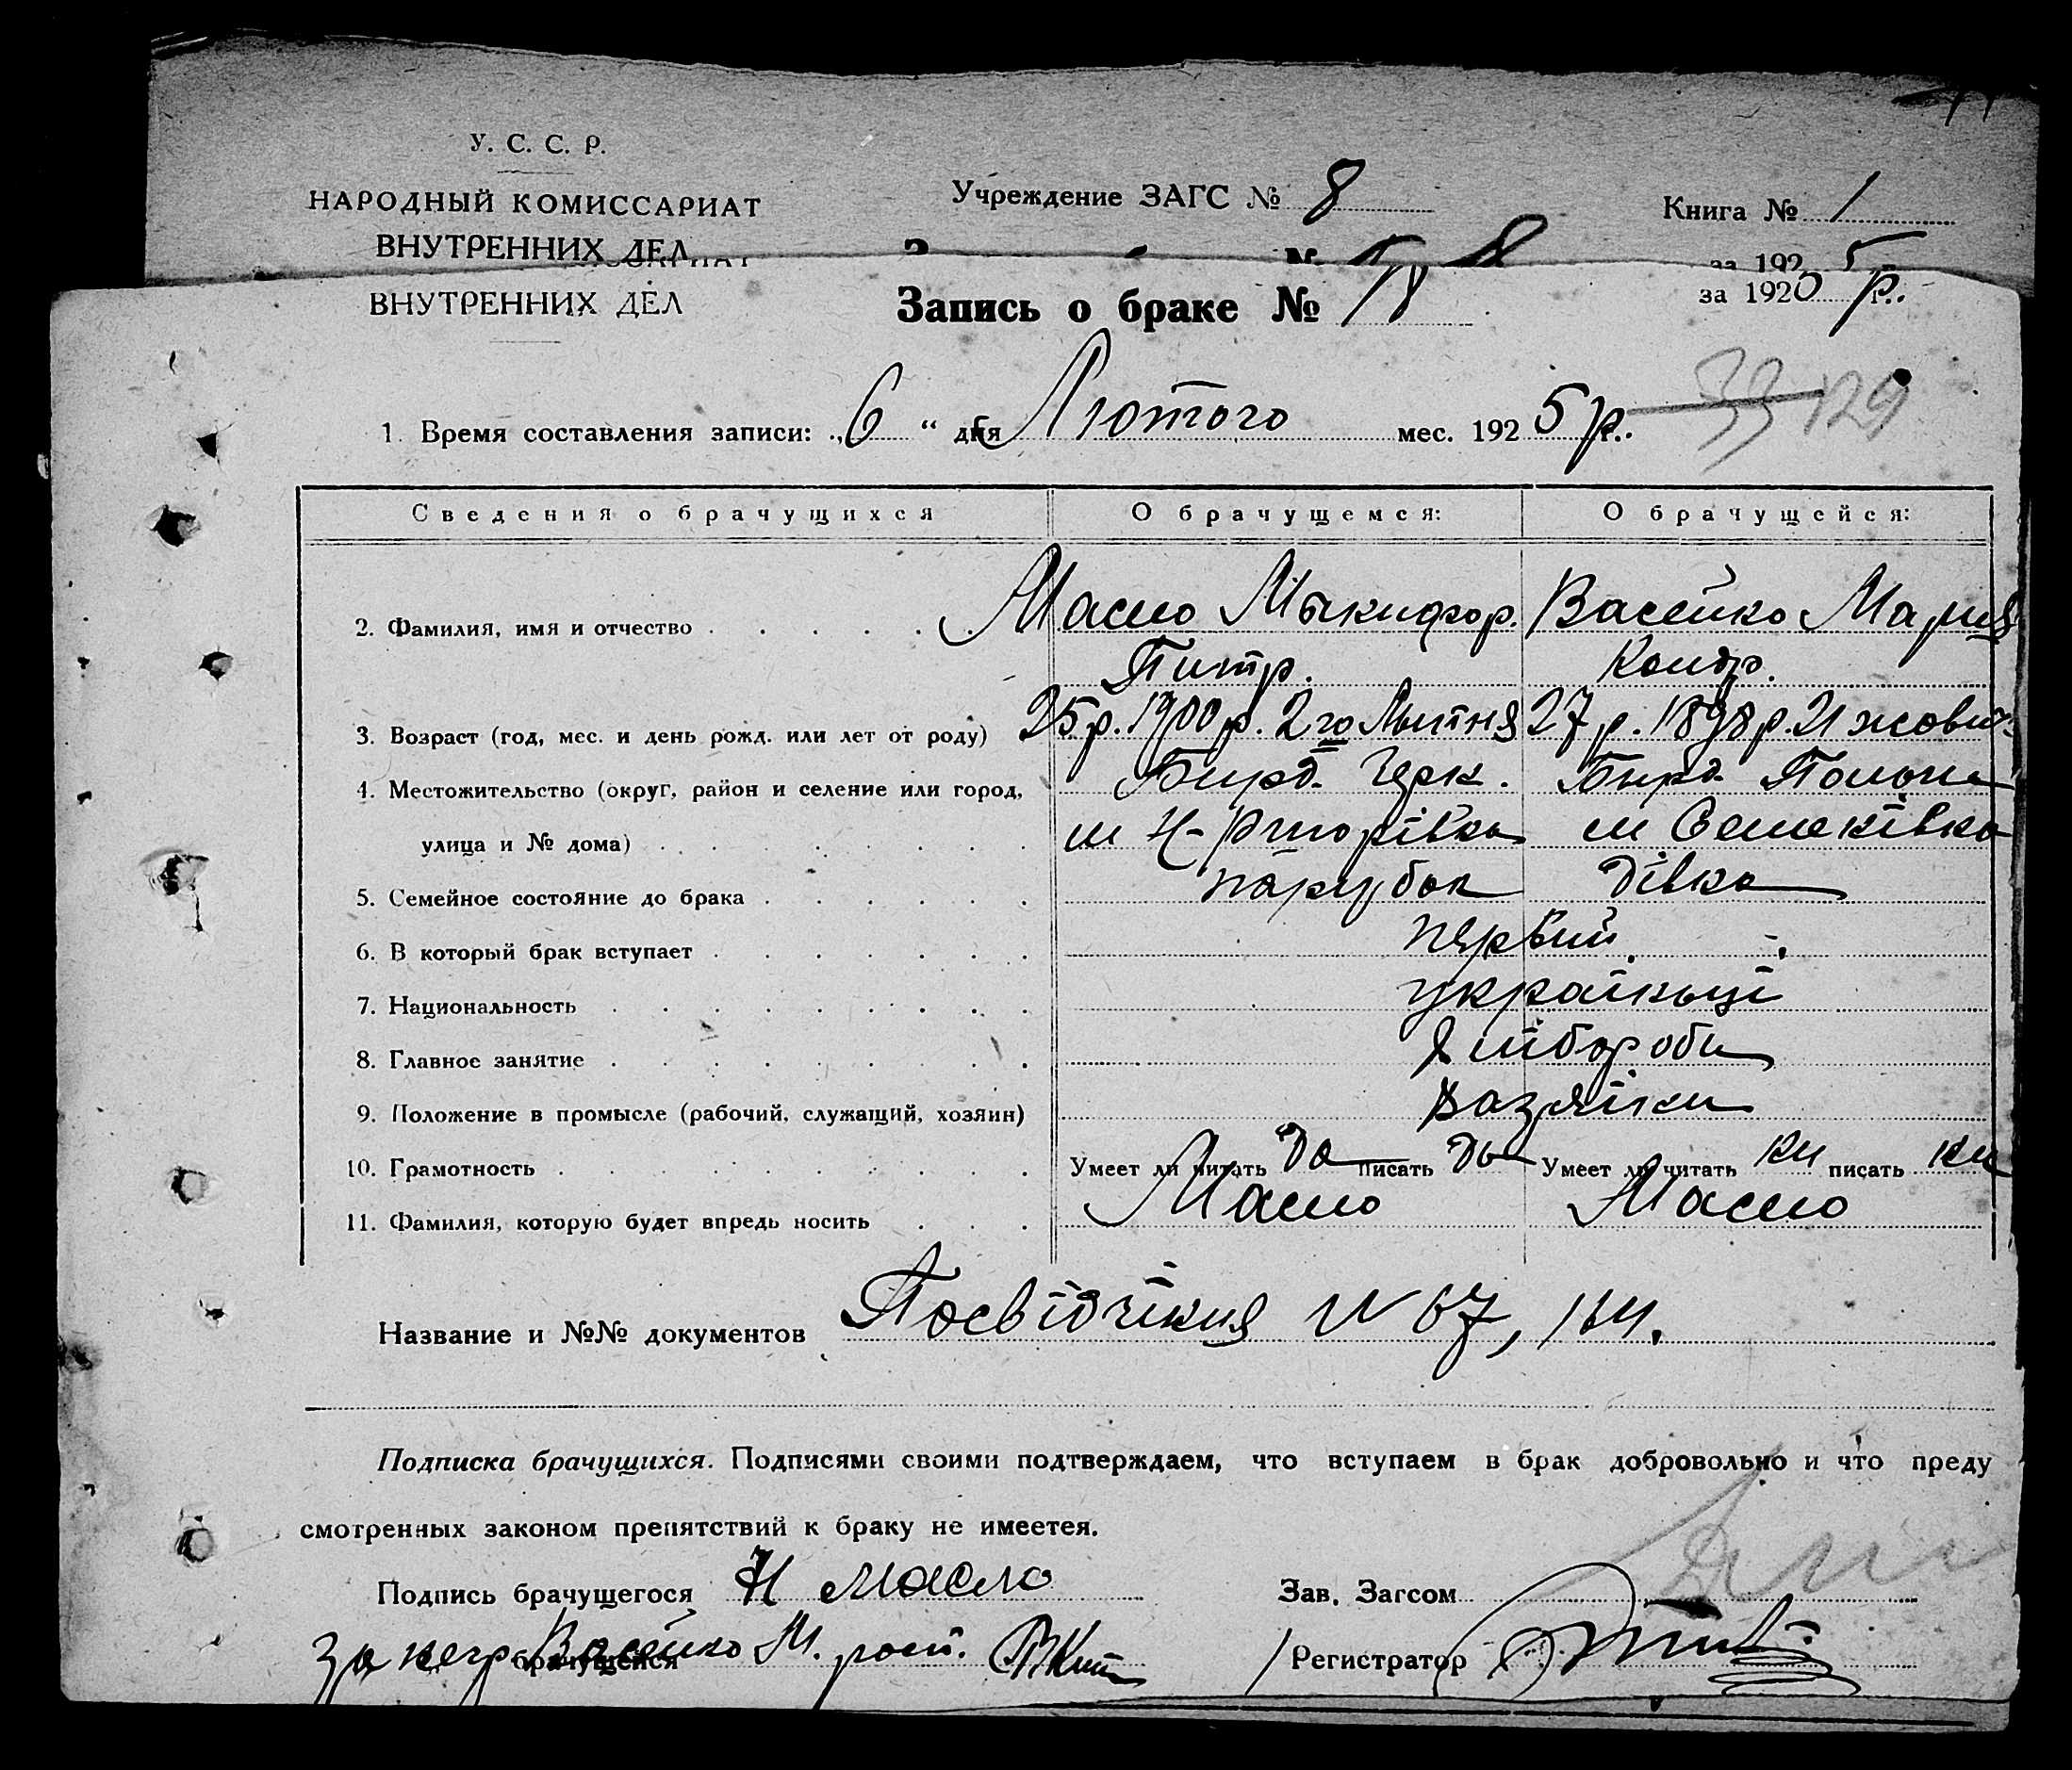 У. С. С. Р.
НАРОДНЫЙ КОМИССАРИАТ
ВНУТРЕННИХ ДЕЛ
Учреждение ЗАГС № 8
Книга № 1
за 192 5
ВНУТРЕННИХ ДЕЛ
Запись о браке №
за 1920 р.
1. Время составления записи: „ 6 “ дня Лютого мес. 192 5 р.
33 129
Сведения о брачущихся О брачущемся: О брачущейся:
2. Фамилия, имя и отчество Масло Мыкифор. Васейко Мария
Питр. Кондр.
3. Возраст (год, мес. и день рожд. или лет от роду) 25 р. 1900 р. 2 го Лытня 27 р. 1898 р. 21 жовт.
4. Местожительство (округ, район и селение или город, Бирд. Черк. Бирд.
улица и № дома) м Семеківка
5. Семейное состояние до брака парубок дівка
6. В который брак вступает первий
7. Национальность украйньці
8. Главное занятие хлибороби
9. Положение в промысле (рабочий, служащий, хозяин) хазяіки
10. Грамотность Умеет ли читать да писать да Умеет ли читать ни писать ни
11. Фамилия, которую будет впредь носить Масло Масло
Название и №№ документов Посвідчіння N 67, 164.
Подписка брачущихся. Подписями своими подтверждаем, что вступаем в брак добровольно и что преду
смотренных законом препятствий к браку не имеется.
Подпись брачущегося Н Масло Зав. Загсом
За негр Васейко М. росп. брачущейся Регистратор